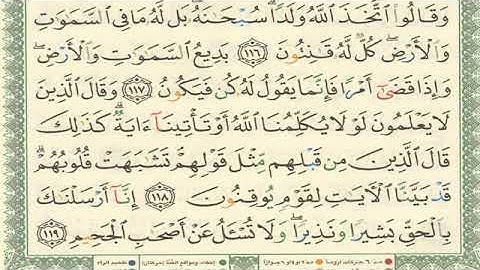 وَقَالُوا۟ ٱتَّخَذَ ٱللَّهُ وَلَدًا ۗ سُبْحَـٰنَهُۥ ۖ بَل لَّهُۥ مَا فِى ٱلسَّمَـٰوَٰتِ
وَٱلْأَرْضِ ۖ كُلٌّ لَّهُۥ قَـٰنِتُونَ ١١٦ بَدِيعُ ٱلسَّمَـٰوَٰتِ وَٱلْأَرْضِ ۖ
وَإِذَا قَضَىٰٓ أَمْرًا فَإِنَّمَا يَقُولُ لَهُۥ كُن فَيَكُونُ ١١٧ وَقَالَ ٱلَّذِينَ
لَا يَعْلَمُونَ لَوْلَا يُكَلِّمُنَا ٱللَّهُ أَوْ تَأْتِينَآ ءَايَةٌ ۗ كَذَٰلِكَ
قَالَ ٱلَّذِينَ مِن قَبْلِهِم مِّثْلَ قَوْلِهِمْ ۘ تَشَـٰبَهَتْ قُلُوبُهُمْ ۗ
قَدْ بَيَّنَّا ٱلْـَٔايَـٰتِ لِقَوْمٍ يُوقِنُونَ ١١٨ إِنَّآ أَرْسَلْنَـٰكَ
بِٱلْحَقِّ بَشِيرًا وَنَذِيرًا ۖ وَلَا تُسْـَٔلُ عَنْ أَصْحَـٰبِ ٱلْجَحِيمِ ١١٩